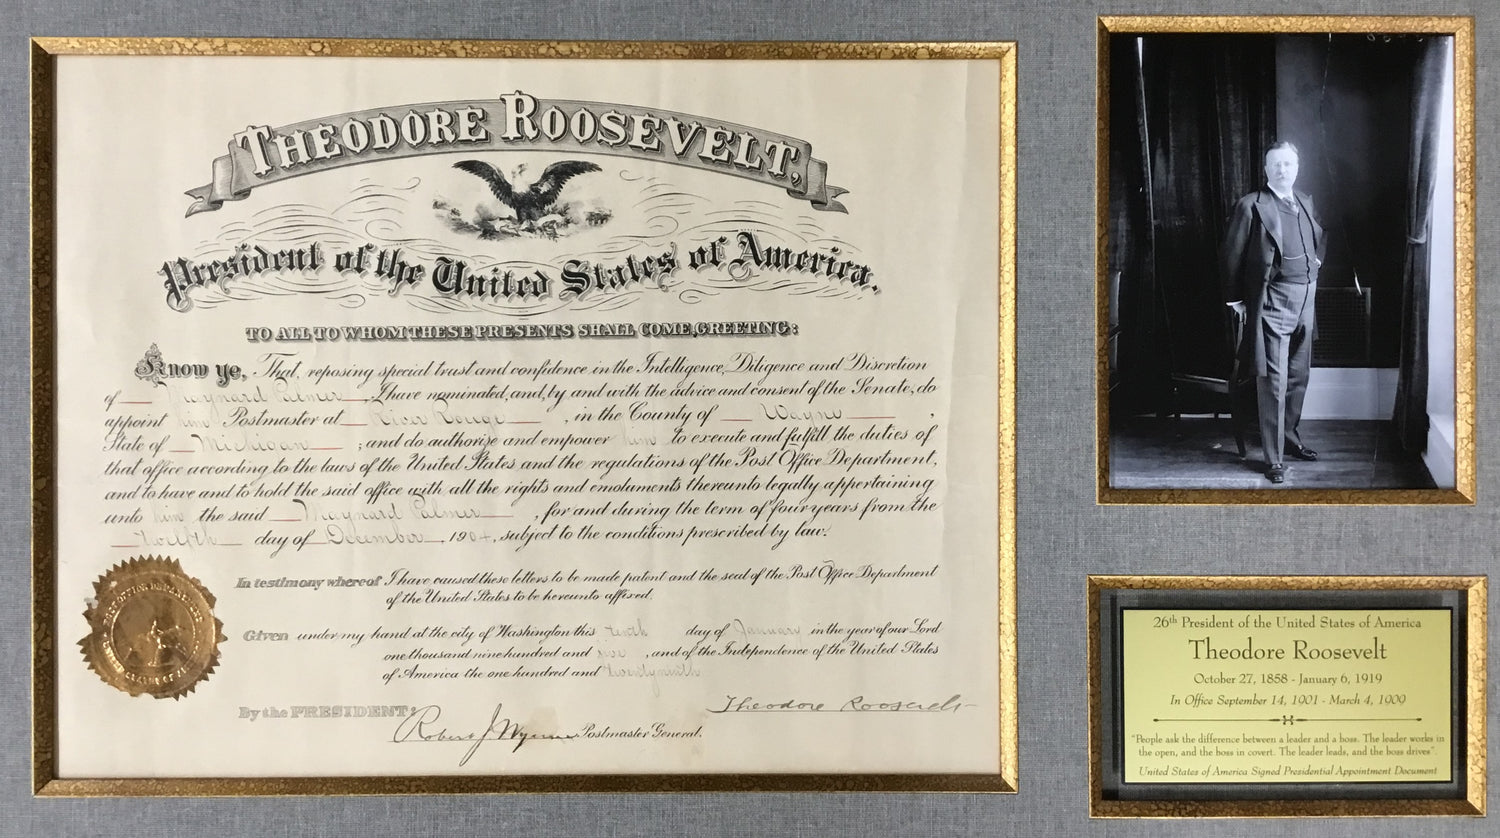 THEODORE ROOSEVELT,
President of the United States of America.
TO ALL TO WHOM THESE PRESENTS SHALL COME, GREETING:
Know ye, That, reposing special trust and confidence in the Intelligence, Diligence and Discretion
of Maynard Palmer, I have nominated, and, by and with the advice and consent of the Senate, do
appoint him Postmaster at River Rouge, in the County of Wayne,
State of Michigan; and do authorize and empower him to execute and fulfill the duties of
that office according to the laws of the United States and the regulations of the Post Office Department,
and to have and to hold the said office with all the rights and emoluments thereunto legally appertaining
unto him the said Maynard Palmer, for and during the term of four years from the
twelfth day of December, 1904, subject to the conditions prescribed by law.
In testimony whereof I have caused these letters to be made patent and the seal of the Post Office Department
of the United States to be hereunto affixed.
Given under my hand at the city of Washington this tenth day of January in the year of our Lord
one thousand nine hundred and , and of the Independence of the United States
of America the one hundred and twenty ninth
By the PRESIDENT: Theodore Roosevelt
Robert J. Wynne Postmaster General.
POST OFFICE DEPARTMENT
26th President of the United States of America
Theodore Roosevelt
October 27, 1858 - January 6, 1919
In Office September 14, 1901 - March 4, 1909
"People ask the difference between a leader and a boss. The leader works in
the open, and the boss in covert. The leader leads, and the boss drives".
United States of America Signed Presidential Appointment Document